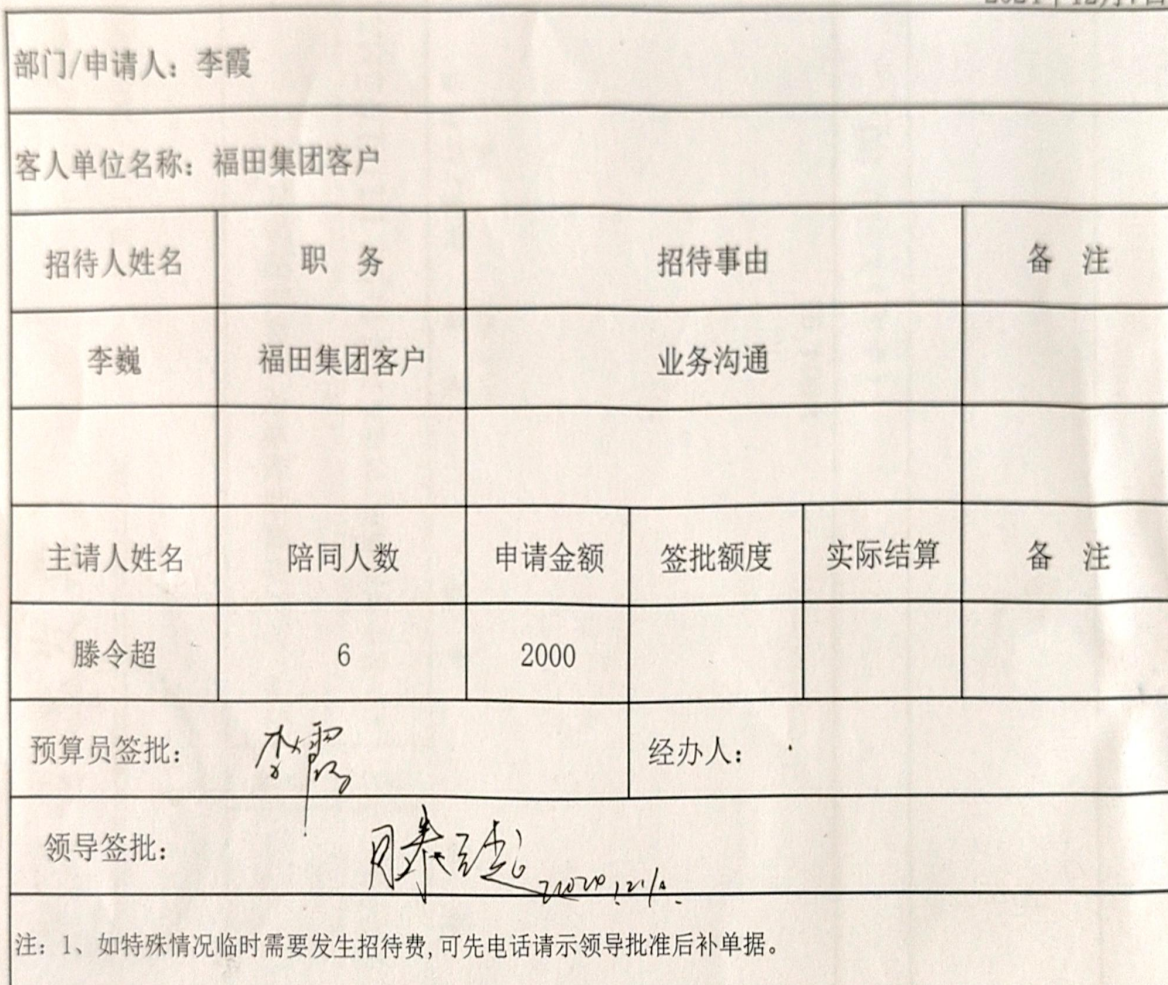 部门/申请人：李霞
客人单位名称：福田集团客户
招待人姓名 职 务 招待事由 备 注
李巍 福田集团客户 业务沟通
主请人姓名 陪同人数 申请金额 签批额度 实际结算 备 注
滕令超 6 2000
预算员签批： 李霞 经办人：
领导签批：
注：1、如特殊情况临时需要发生招待费,可先电话请示领导批准后补单据。